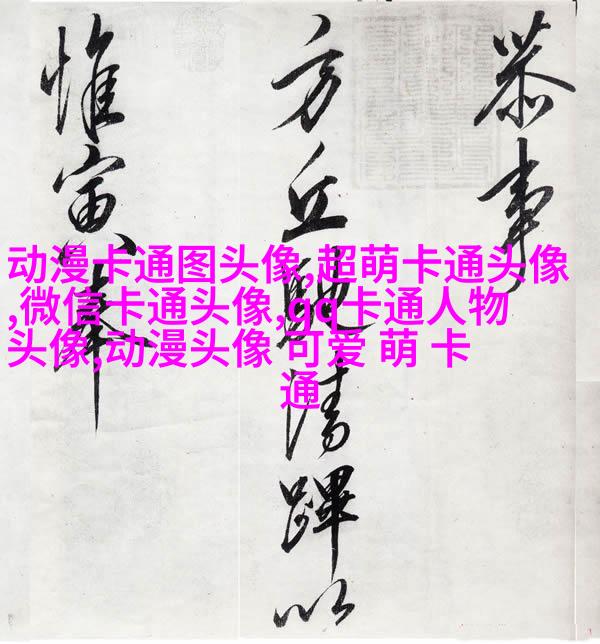 恭事
方丘清蹕以
惟寅奉
动漫卡通图头像,超萌卡通头像
,微信卡通头像,qq卡通人物
头像,动漫头像 可爱 萌 卡
通